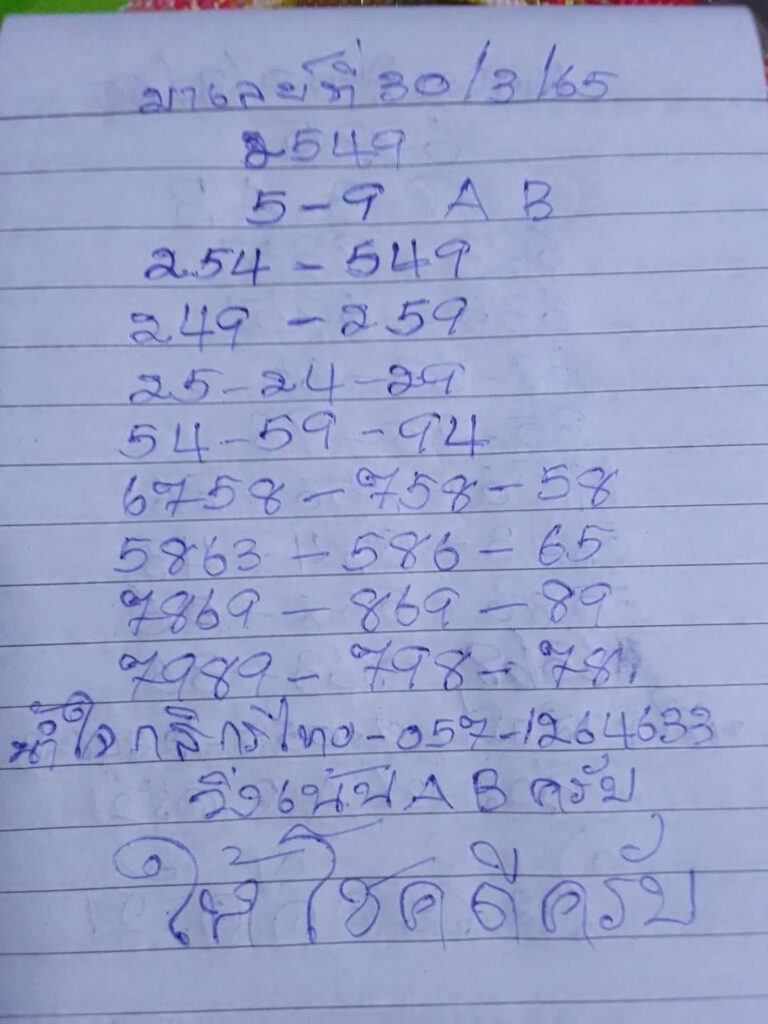 มาเลย์ที่ 30/3/65
2549
5-9 A B
254 - 549
249 - 259
25-24-29
54-59-94
6758 - 758 - 58
5863 - 586 - 65
7869 - 869 - 89
7989 - 798 - 78
น้ำใจกสิกรไทย-057-1264633
วิ่งเน้น A B ครับ
ให้โชคดีครับ